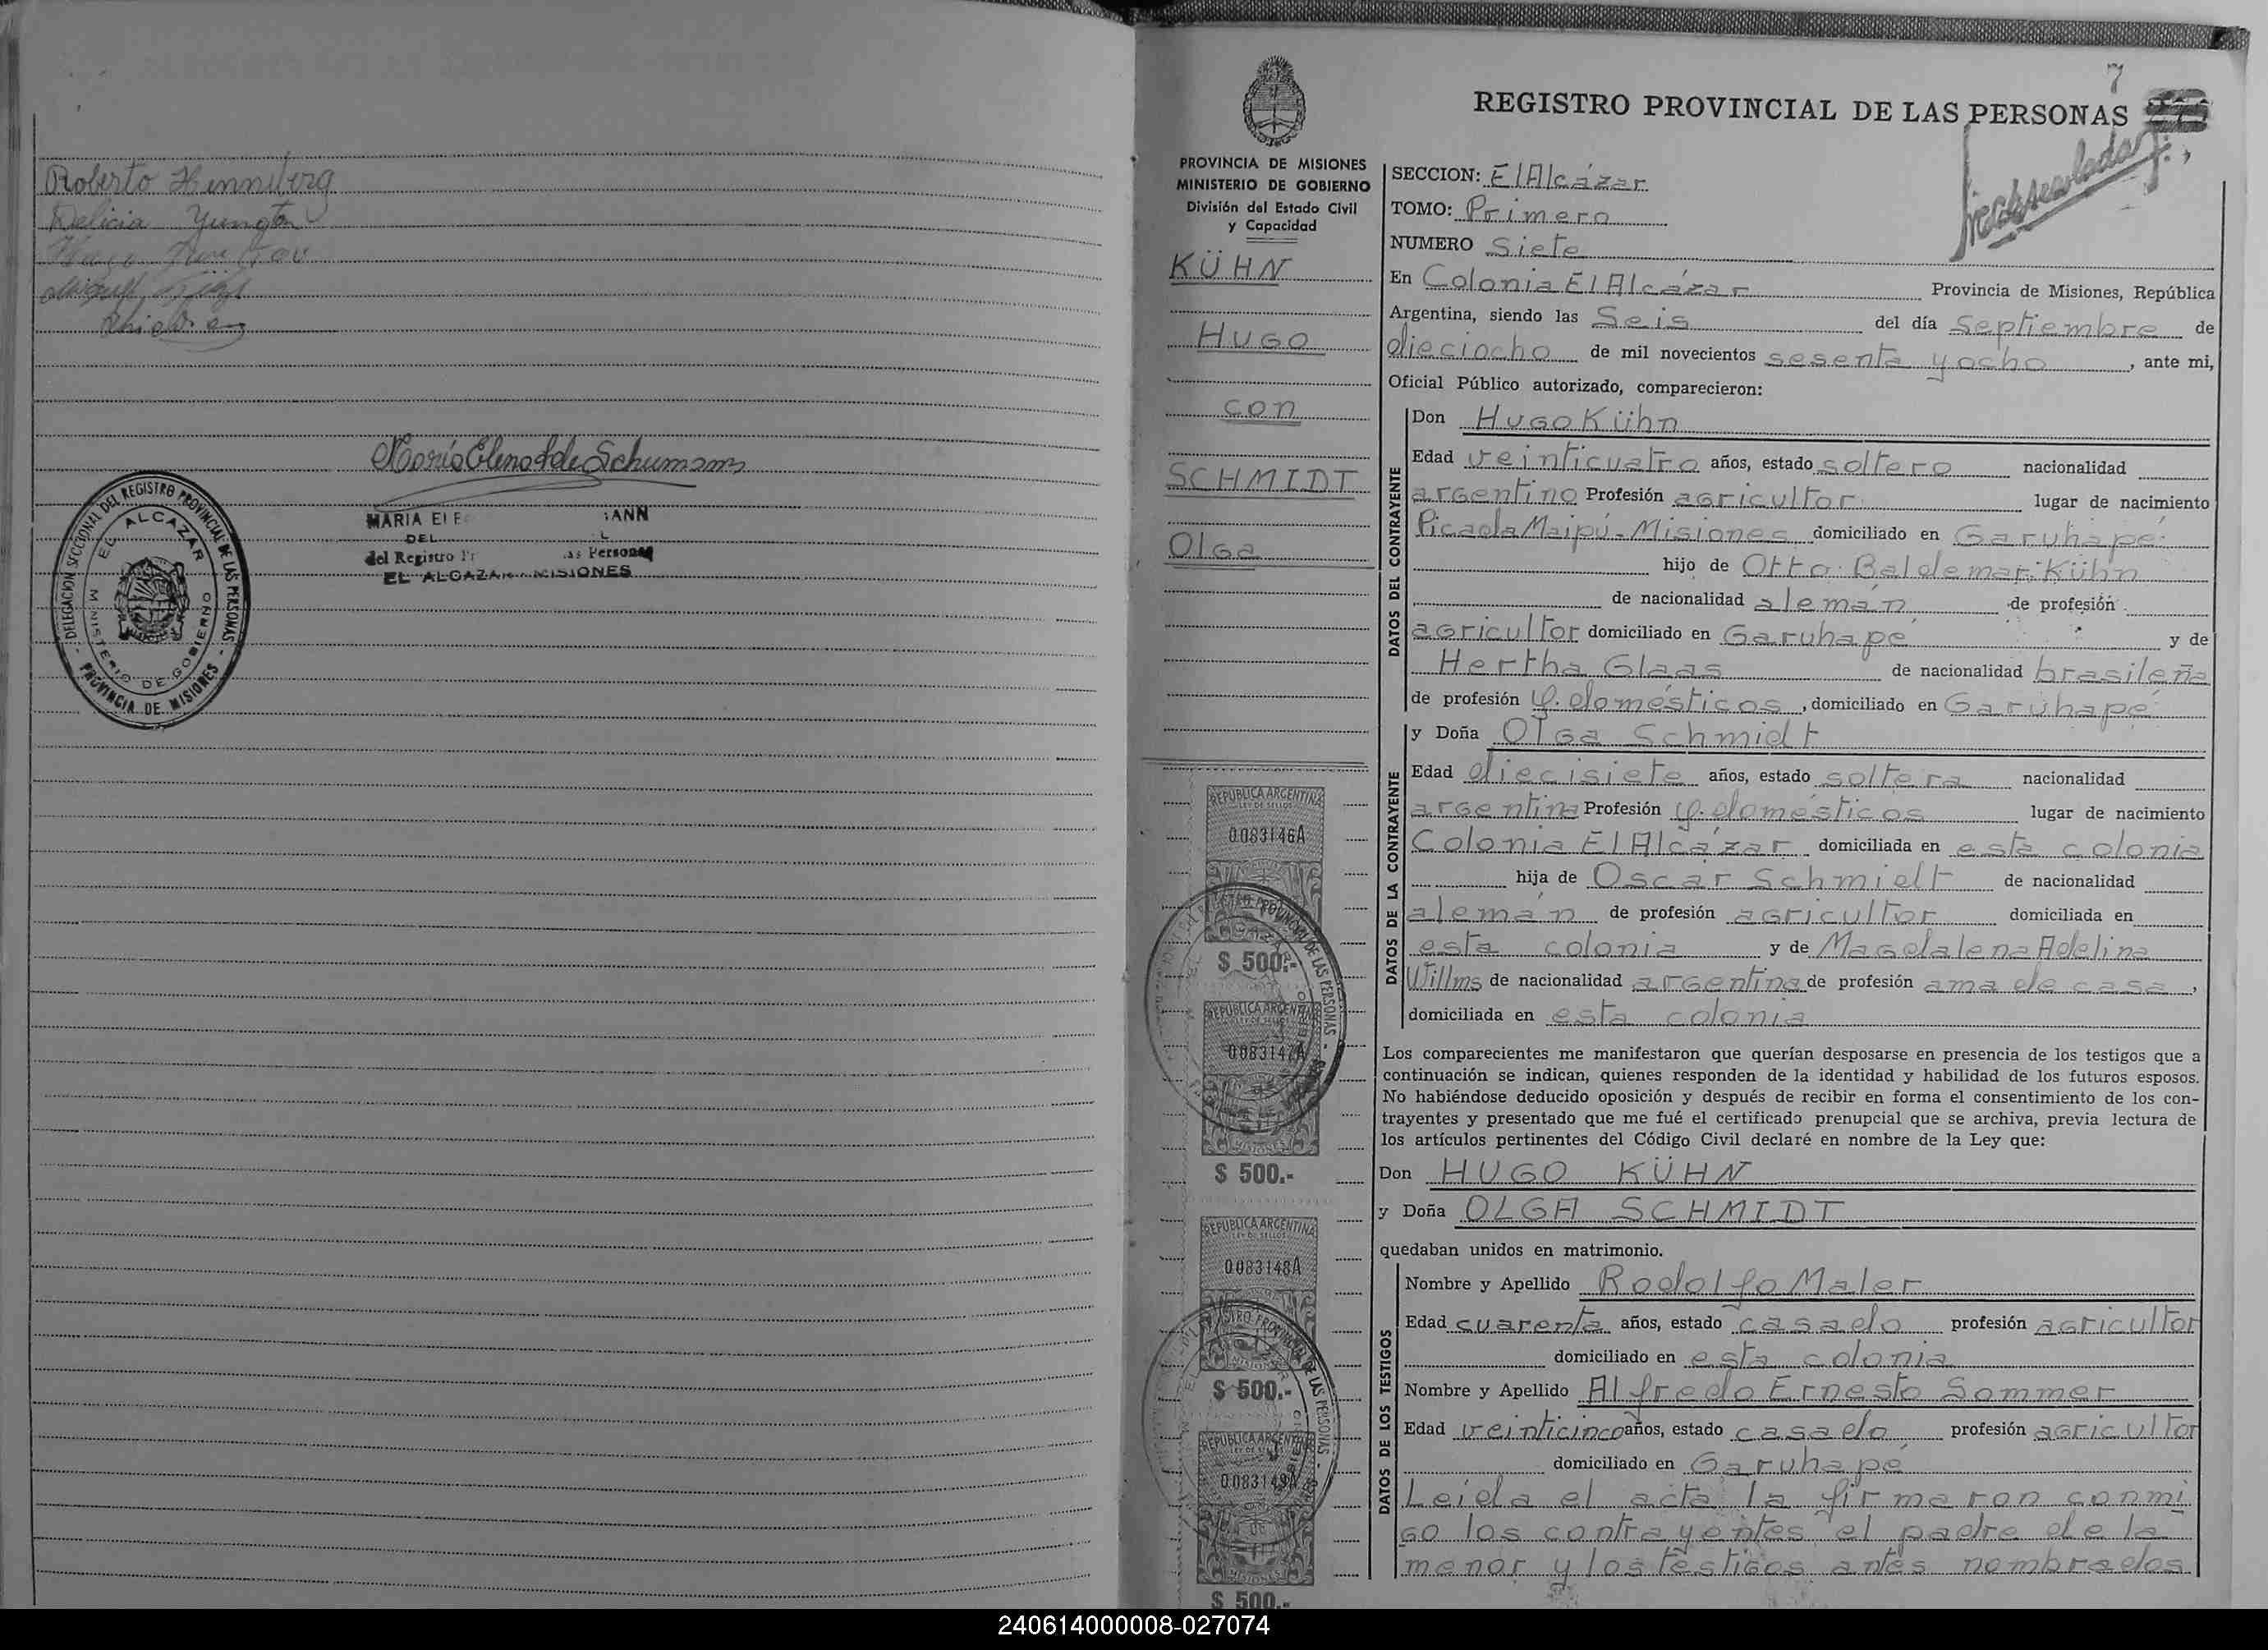 Roberto Hennberg
Delicia Yungton
Hugo
Miguel
María Elena de Schumann
MARIA ELE ANN
DEL L
del Registro Pr as Personas
EL ALCAZAR MISIONES
DELEGACION SECCIONAL DEL REGISTRO PROVINCIAL DE LAS PERSONAS
EL ALCAZAR
MINISTERIO DE GOBIERNO
PROVINCIA DE MISIONES
7
REGISTRO PROVINCIAL DE LAS PERSONAS
PROVINCIA DE MISIONES
MINISTERIO DE GOBIERNO
División del Estado Civil
y Capacidad
KÜHN
HUGO
con
SCHMIDT
Olga
SECCION: El Alcázar
TOMO: Primero
NUMERO Siete
En Colonia El Alcázar Provincia de Misiones, República
Argentina, siendo las Seis del día Septiembre de
dieciocho de mil novecientos sesenta y ocho, ante mi,
Oficial Público autorizado, comparecieron:
DATOS DEL CONTRAYENTE
Don Hugo Kühn
Edad veinticuatro años, estado soltero nacionalidad
argentino Profesión agricultor lugar de nacimiento
Picada Maipú - Misiones domiciliado en Garuhapé
hijo de Otto Baldemar Kühn
de nacionalidad alemán de profesión
agricultor domiciliado en Garuhapé y de
Hertha Glaas de nacionalidad brasileña
de profesión q. domésticos, domiciliado en Garuhapé
DATOS DE LA CONTRAYENTE
y Doña Olga Schmidt
Edad diecisiete años, estado soltera nacionalidad
argentina Profesión q. domésticos lugar de nacimiento
Colonia El Alcázar domiciliada en esta colonia
hija de Oscar Schmidt de nacionalidad
alemán de profesión agricultor domiciliada en
esta colonia y de Magdalena Adelina
Willms de nacionalidad argentina de profesión ama de casa,
domiciliada en esta colonia
Los comparecientes me manifestaron que querían desposarse en presencia de los testigos que a
continuación se indican, quienes responden de la identidad y habilidad de los futuros esposos.
No habiéndose deducido oposición y después de recibir en forma el consentimiento de los con-
trayentes y presentado que me fué el certificado prenupcial que se archiva, previa lectura de
los artículos pertinentes del Código Civil declaré en nombre de la Ley que:
Don HUGO KÜHN
y Doña OLGA SCHMIDT
quedaban unidos en matrimonio.
DATOS DE LOS TESTIGOS
Nombre y Apellido Rodolfo Maler
Edad cuarenta años, estado casado profesión agricultor
domiciliado en esta colonia
Nombre y Apellido Alfredo Ernesto Sommer
Edad veinticinco años, estado casado profesión agricultor
domiciliado en Garuhapé
Leída el acta la firmaron conmi
go los contrayentes el padre de la
menor y los testigos antes nombrados
REPUBLICA ARGENTINA
LEY DE SELLOS
0083146A
$ 500.-
REPUBLICA ARGENTINA
0083147A
MISIONES
$ 500.-
REPUBLICA ARGENTINA
LEY DE SELLOS
0083148A
$ 500.-
REPUBLICA ARGENTINA
0083149A
MISIONES
$ 500.-
240614000008-027074